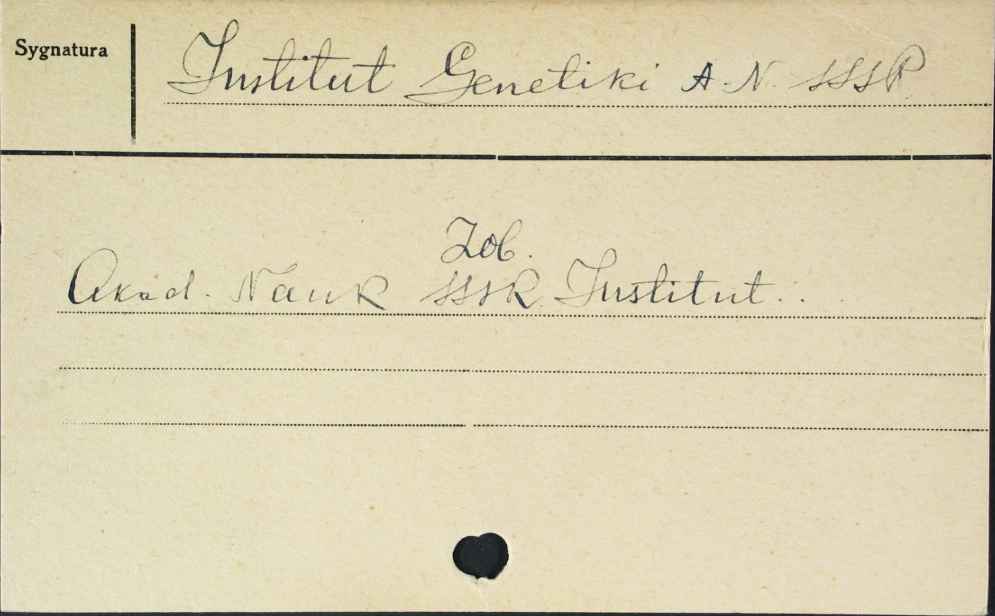 Sygnatura
Institut Genetiki A.N. SSSR
Zob.
Akad. Nauk SSSR Institut...